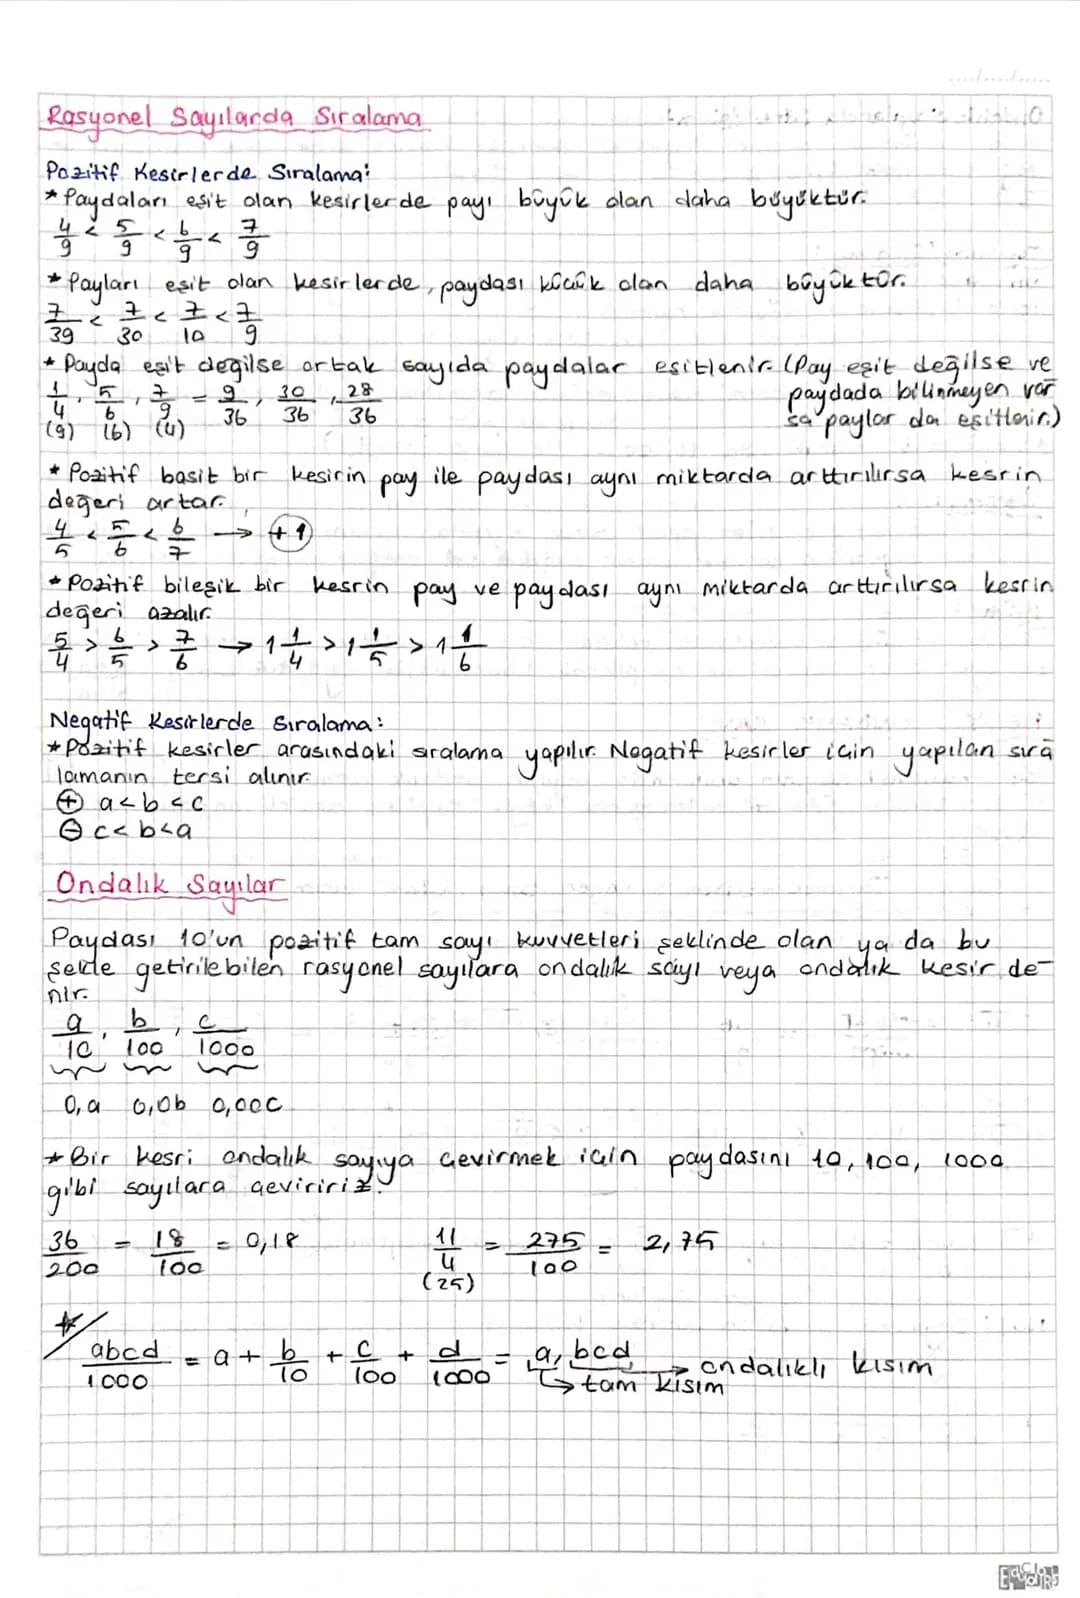 Rasyonel Sayılarda Sıralama
Pozitif Kesirlerde Sıralama:
* Paydaları eşit olan kesirlerde payı büyük olan daha büyüktür.
4/9 < 5/9 < 6/9 < 7/9
* Payları eşit olan kesirlerde, paydası küçük olan daha büyüktür.
7/39 < 7/30 < 7/10 < 7/9
* Payda eşit değilse ortak sayıda paydalar eşitlenir. (Pay eşit değilse ve
paydada bilinmeyen var
sa paylar da eşitlenir.)
1/4, 5/6, 7/9 = 9/36, 30/36, 28/36
(9) (6) (4)
* Pozitif basit bir kesirin pay ile paydası aynı miktarda arttırılırsa kesrin
değeri artar.
4/5 < 5/6 < 6/7 → +1
* Pozitif bileşik bir kesrin pay ve paydası aynı miktarda arttırılırsa kesrin
değeri azalır.
5/4 > 6/5 > 7/6 → 1 1/4 > 1 1/5 > 1 1/6
Negatif Kesirlerde Sıralama:
* Pozitif kesirler arasındaki sıralama yapılır. Negatif kesirler için yapılan sıra
lamanın tersi alınır.
⊕ a<b<c
⊖ c<b<a
Ondalık Sayılar
Paydası 10'un pozitif tam sayı kuvvetleri şeklinde olan ya da bu
şekle getirilebilen rasyonel sayılara ondalık sayı veya ondalık kesir de-
nir.
a/10, b/100, c/1000
0,a 0,0b 0,00c
* Bir kesri ondalık sayıya çevirmek için paydasını 10, 100, 1000
gibi sayılara çeviririz.
36/200 = 18/100 = 0,18 11/4 = 275/100 = 2,75
(25)
* abcd/1000 = a + b/10 + c/100 + d/1000 = a,bcd → ondalıklı kısım
→ tam kısım